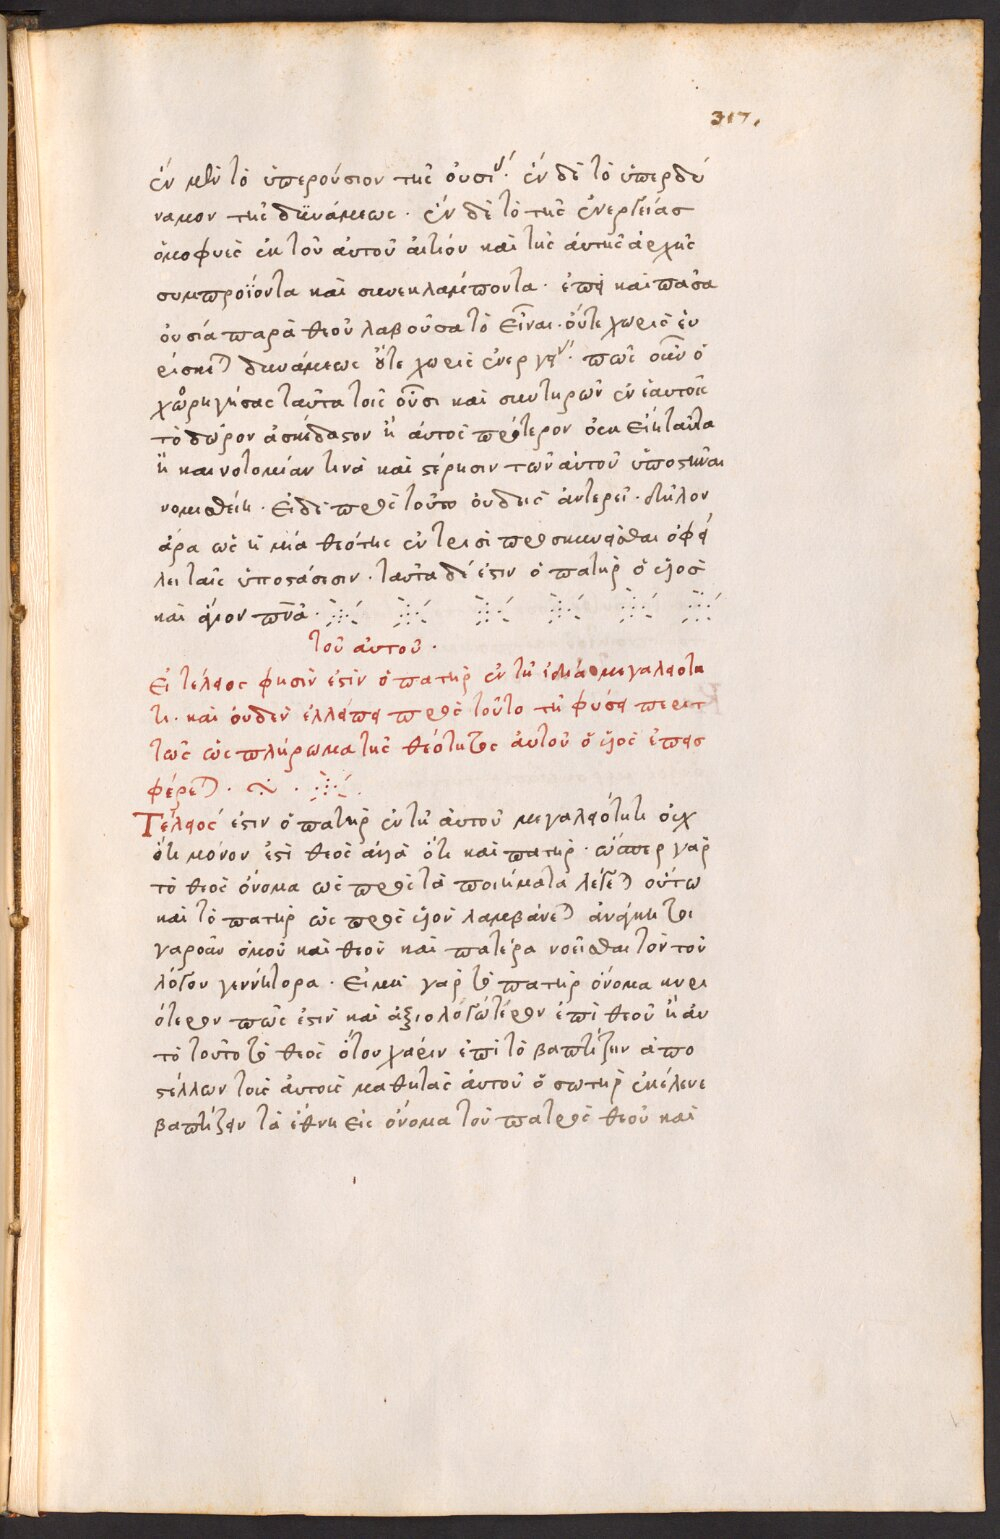 317.
ἓν μὲν τὸ ὑπερούσιον τῆς οὐσί ἓν δὲ τὸ ὑπερδύ
ναμον τῆς δυνάμεως · ἓν δὲ τὸ τῆς ἐνεργείας
ὁμοφυὲς ἐκ τοῦ αὐτοῦ αἰτίου καὶ τῆς αὐτῆς ἀρχῆς
συμπροϊόντα καὶ συνεκλάμποντα · ἐπεὶ καὶ πᾶσα
οὐσία παρὰ θεοῦ λαβοῦσα τὸ εἶναι · οὔτε χωρὶς εὑ
ρίσκεται δυνάμεως οὔτε χωρὶς ἐνεργεί · πῶς οὖν ὁ
χωρηγήσας ταῦτα τοῖς οὖσι καὶ συντηρῶν ἐν ἑαυτοῖς
τὸ δῶρον ἀσκέδαστον ἢ αὐτὸς πρότερον οὐκ εἶχε ταῦτα
ἢ καινοτομίαν τινὰ καὶ στέρησιν τῶν αὐτοῦ ὑποστῆναι
νομισθείη · εἰ δὲ πρὸς τοῦτο οὐδεὶς ἀντερεῖ · δῆλον
ἄρα ὡς ἡ μία θεότης ἐν τρισὶ προσκυνεῖσθαι ὀφεί
λει ταῖς ὑποστάσεσιν · ταῦτα δέ ἐστιν ὁ πατὴρ ὁ υἱὸς
καὶ ἅγιον πνᾶ ·
τοῦ αὐτοῦ ·
Εἰ τέλειος φησὶν ἐστὶν ὁ πατὴρ ἐν τῇ ἰδίᾳ μεγαλειότη
τι · καὶ οὐδὲν ἐλλείπει πρὸς τοῦτο τῇ φύσει περιτ
τῶς ὡς πλήρωμα τῆς θεότητος αὐτοῦ ὁ υἱὸς ἐπεισ
φέρεται ·
Τέλειός ἐστιν ὁ πατὴρ ἐν τῇ αὐτοῦ μεγαλειότητι οὐχ
ὅτι μόνον ἐστὶ θεὸς ἀλλὰ ὅτι καὶ πατὴρ · ὥσπερ γὰρ
τὸ θεὸς ὄνομα ὡς πρὸς τὰ ποιήματα λέγεται οὕτω
καὶ τὸ πατὴρ ὡς πρὸς υἱὸν λαμβάνεται ἀνάγκη τοι
γαροῦν ὁμοῦ καὶ θεὸν καὶ πατέρα νοεῖσθαι τὸν τοῦ
λόγου γεννήτορα · εἰ μὴ γὰρ τὸ πατὴρ ὄνομα κυρι
ότερον πῶς ἐστὶν καὶ ἀξιολογώτερον ἐπὶ θεοῦ ἢ αὐ
τὸ τοῦτο τὸ θεὸς ὅτου χάριν ἐπὶ τὸ βαπτίζειν ἀπο
στέλλων τοῖς αὐτοῖς μαθητὰς αὐτοῦ ὁ σωτὴρ ἐκέλευε
βαπτίζειν τὰ ἔθνη εἰς ὄνομα τοῦ πατρὸς θεοῦ καὶ